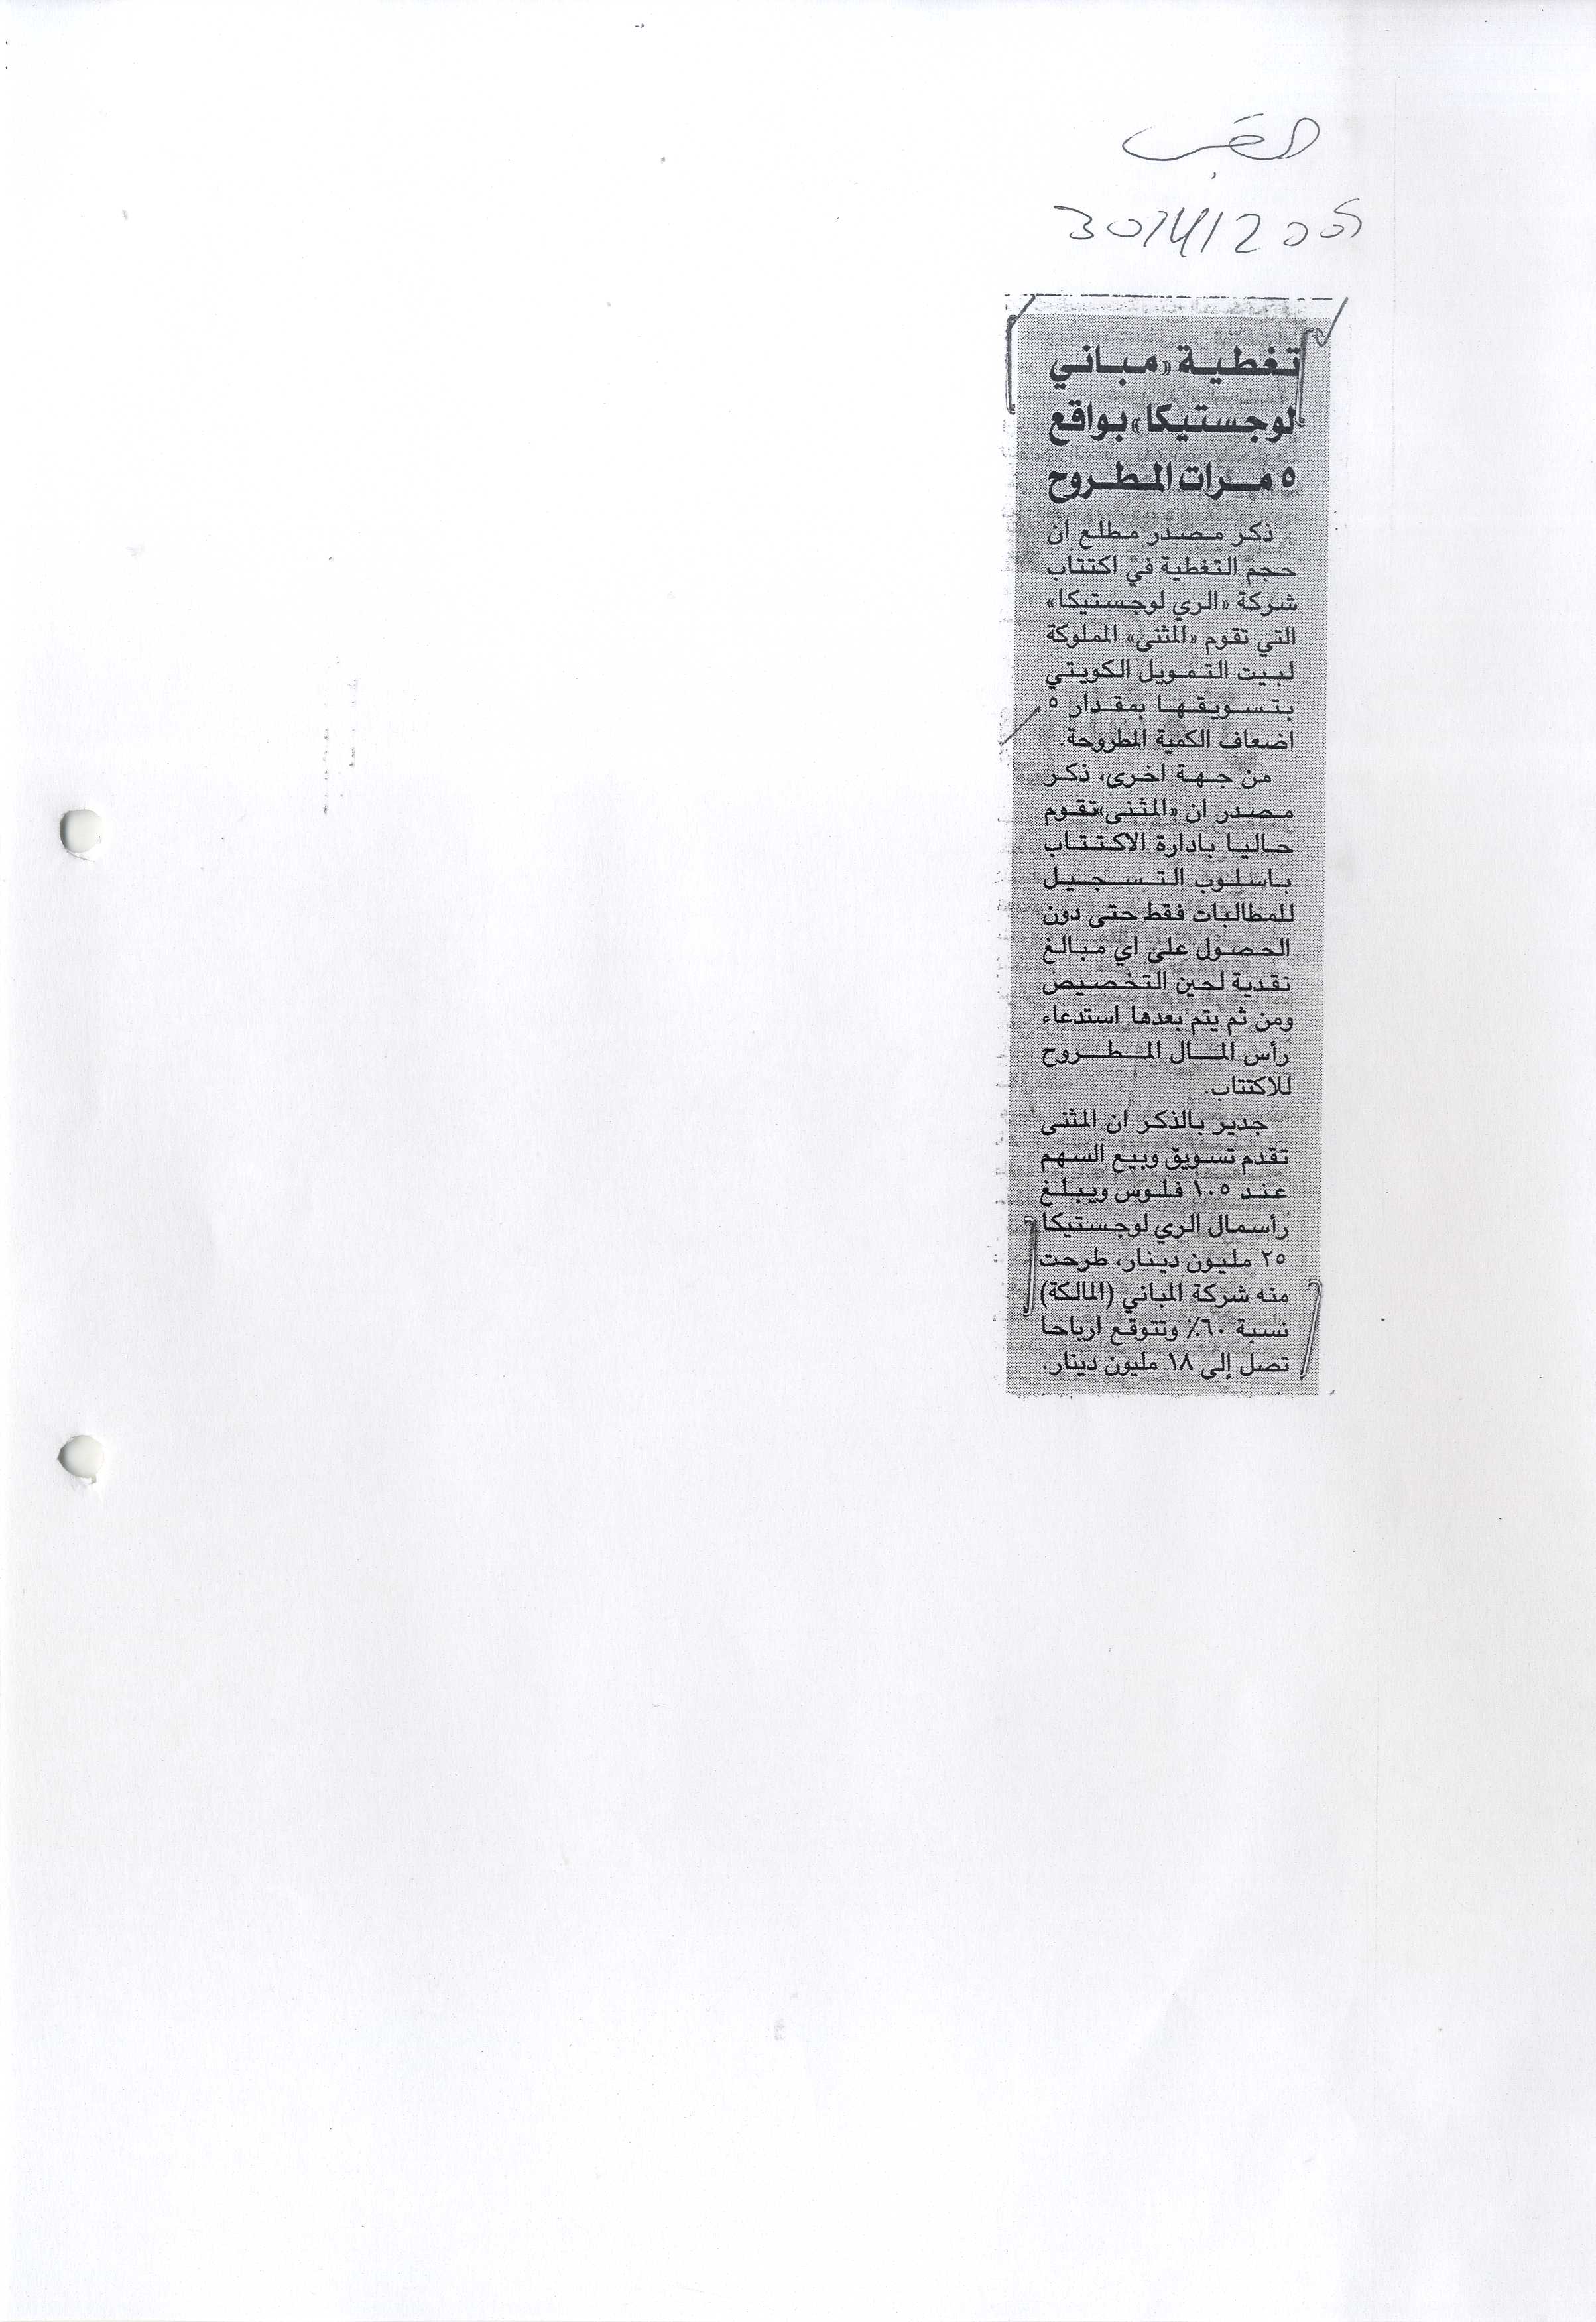 القبس
30/4/2005
تغطية «مباني
لوجستيكا» بواقع
٥ مرات المطروح
ذكر مصدر مطلع ان
حجم التغطية في اكتتاب
شركة «الري لوجستيكا»
التي تقوم «المثنى» المملوكة
لبيت التمويل الكويتي
بتسويقها بمقدار ٥
اضعاف الكمية المطروحة.
من جهة اخرى، ذكر
مصدر ان «المثنى» تقوم
حاليا بادارة الاكتتاب
باسلوب التسجيل
للمطالبات فقط حتى دون
الحصول على اي مبالغ
نقدية لحين التخصيص
ومن ثم يتم بعدها استدعاء
رأس المال المطروح
للاكتتاب.
جدير بالذكر ان المثنى
تقدم تسويق وبيع السهم
عند ١٠٥ فلوس ويبلغ
رأسمال الري لوجستيكا
٢٥ مليون دينار، طرحت
منه شركة المباني (المالكة)
نسبة ٦٠٪ وتتوقع ارباحا
تصل إلى ١٨ مليون دينار.